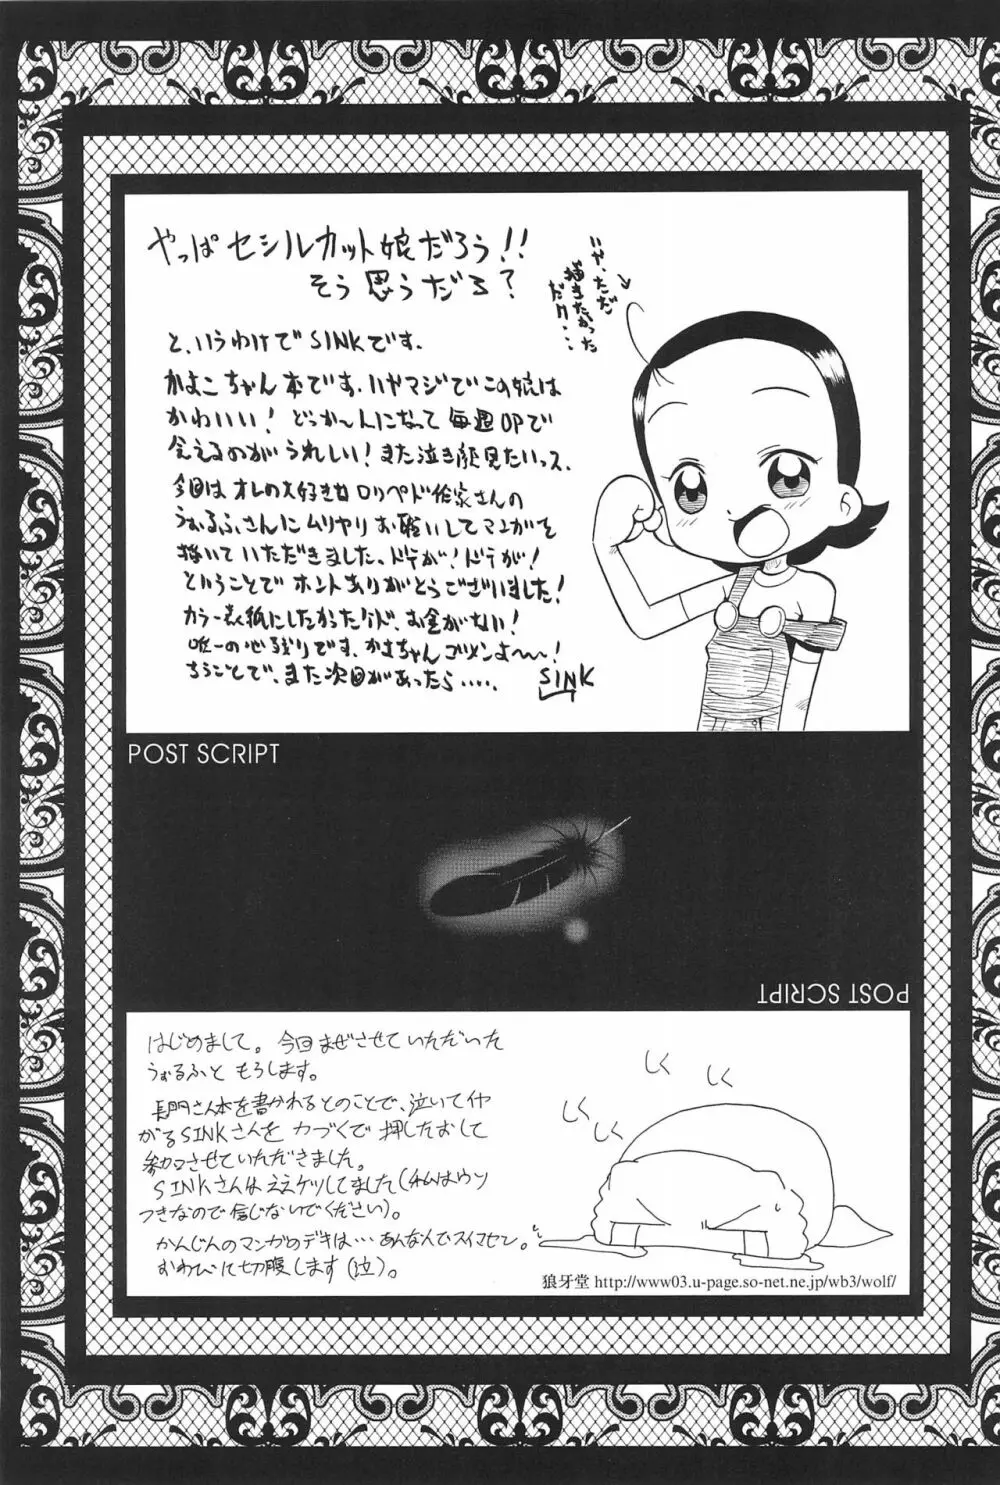 やっぱセシルカット娘だろう!!
そう思うだろ?
いや、ただ
描きたかった
だけ・・
と、いうわけでSINKです。
かよこちゃん本です、いやマジでこの娘は
かわいい! どっか〜んになって毎週OPで
会えるのがうれしい!また泣き顔見たいっス、
今回はオレの大好きなロリペド作家さんの
うぉるふさんにムリヤリお願いしてマンガを
描いていただきました、ドテが!ドテが!
ということでホントありがとうございました!
カラー表紙にしたかったけど、お金がない!
唯一の心残りです、かよちゃんゴメンよ〜〜!
ちうことで、また次回があったら・・・・・
SINK
POST SCRIPT
POST SCRIPT
はじめまして。今回まぜさせていただいた
うぉるふともうします。
長門さん本を書かれるとのことで、泣いて
がるSINKさんを力づくで押したおして
参加させていただきました。
SINKさんはええケツしてました(私はウソ
つきなので信じないでください)。
かんじんのマンガのデキは…あんなんでスイマセン。
おわびに切腹します(泣)。
しく
しく
しく
しく
狼牙堂 http://www03.u-page.so-net.ne.jp/wb3/wolf/